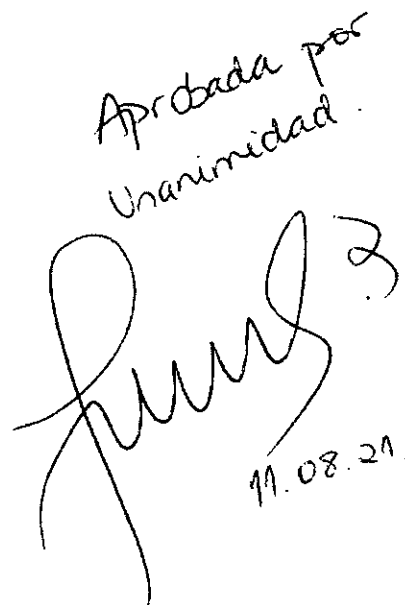 Aprobada por
Unanimidad.
11.08.21.